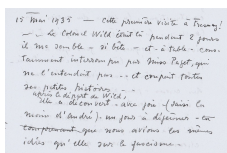 15 mai 1935 — cette première visite à Tresnay!
— Le Colonel Wild était là pendant 2 jours
il me semble - si bête - et - à table - cons-
tamment interrompu par Miss Paget, qui
ne l'entendit pas - et coupait toutes
ses petites histoires —
après le départ de Wild,
elle a découvert - avec joie (saisi la
main d'André) un jour à déjeuner - en
comprenant que nous avions les mêmes
idées qu'elle sur le fascisme -